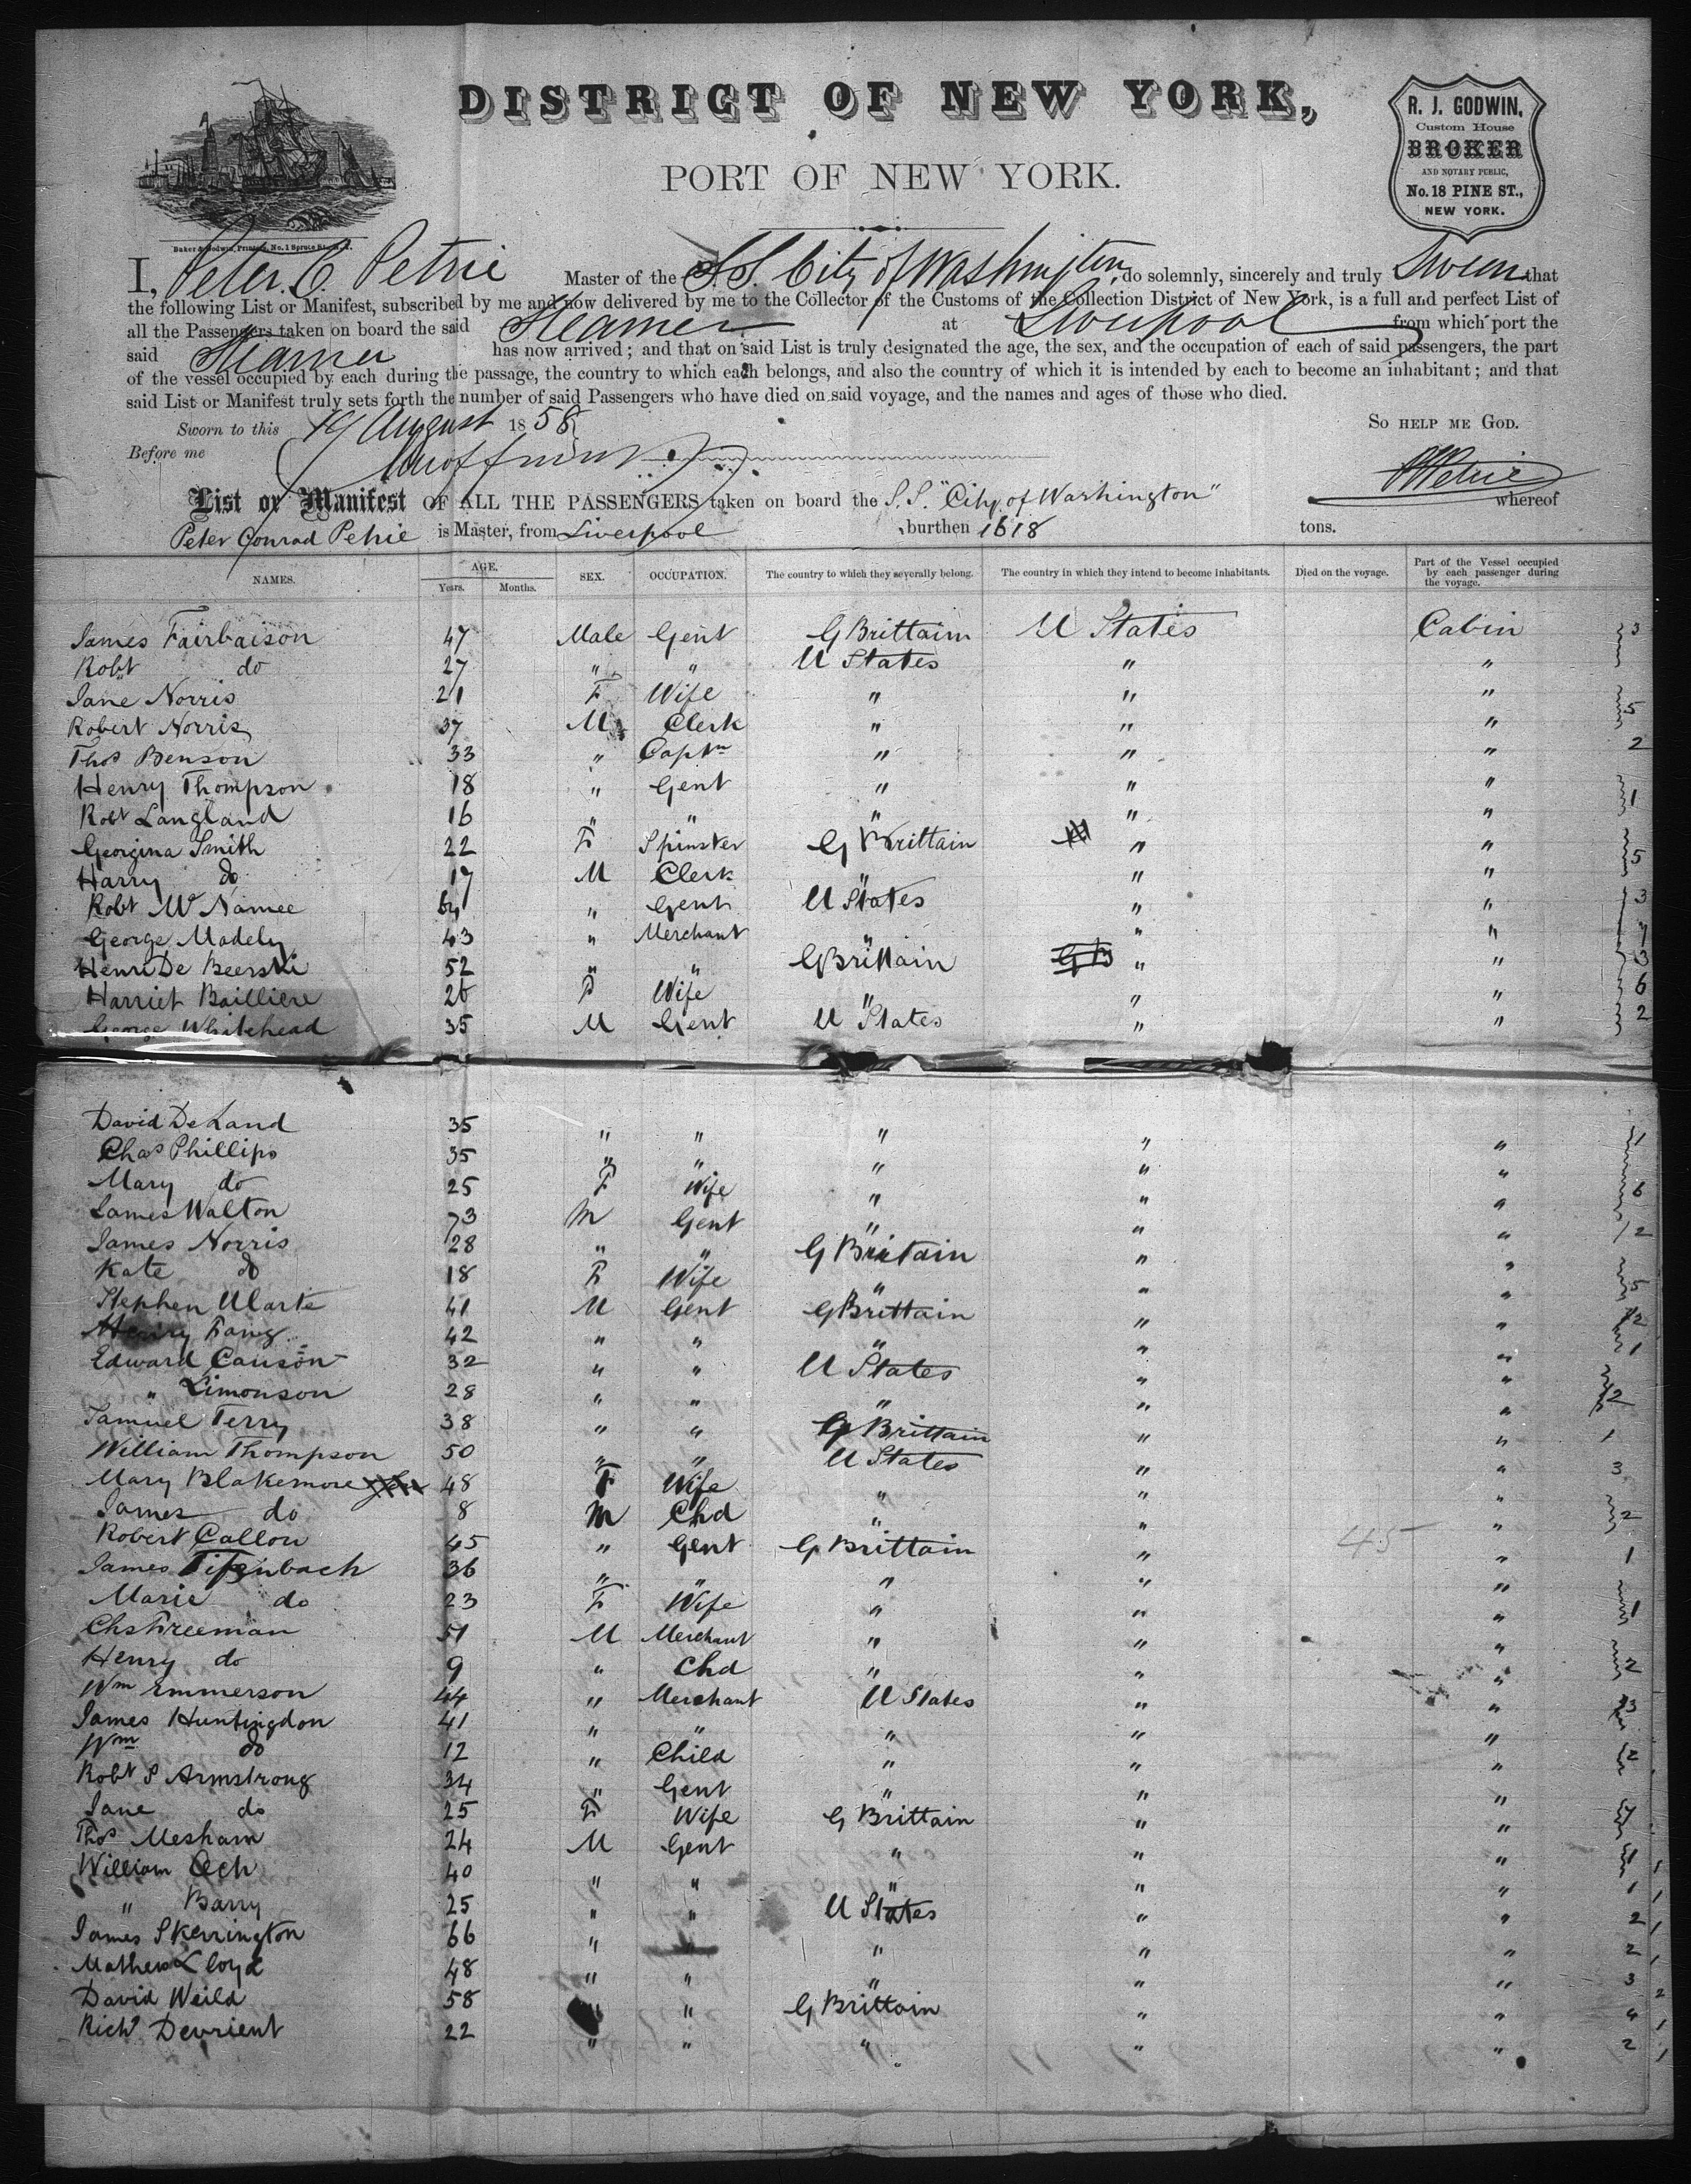 DISTRICT OF NEW YORK,
PORT OF NEW YORK.
R. J. GODWIN,
Custom House
BROKER
AND NOTARY PUBLIC,
No. 18 PINE ST.,
NEW YORK.
Baker & Godwin, Printers, No. 1 Spruce St., N.Y.
I, Peter. C. Petrie Master of the S.S. City of Washington, do solemnly, sincerely and truly Swear that
the following List or Manifest, subscribed by me and now delivered by me to the Collector of the Customs of the Collection District of New York, is a full and perfect List of
all the Passengers taken on board the said Steamer at Liverpool from which port the
said Steamer has now arrived; and that on said List is truly designated the age, the sex, and the occupation of each of said passengers, the part
of the vessel occupied by each during the passage, the country to which each belongs, and also the country of which it is intended by each to become an inhabitant; and that
said List or Manifest truly sets forth the number of said Passengers who have died on said voyage, and the names and ages of those who died.
Sworn to this 19 August 1858 So help me God.
Before me
PCPetrie
List or Manifest OF ALL THE PASSENGERS taken on board the S.S. "City of Washington" whereof
Peter Conrad Petrie is Master, from Liverpool burthen 1618 tons.
NAMES. AGE. Years. Months. SEX. OCCUPATION. The country to which they severally belong. The country in which they intend to become inhabitants. Died on the voyage. Part of the Vessel occupied by each passenger during the voyage.
James Fairbaison 47 Male Gent G Brittain U States Cabin 3
Robt do 27 " " U States " "
Jane Norris 21 F Wife " " "
Robert Norris 37 M Clerk " " " 5
Thos Benson 33 " Captn " " " 2
Henry Thompson 18 " Gent " " "
Robt Langland 16 " " " " " 1
Georgina Smith 22 F Spinster G Brittain " "
Harry do 17 M Clerk " " " 5
Robt McNamee " Gent U States " " 3
George Madely 43 " Merchant " " " 7
Henri De Beerski 52 " " G Brittain GB " " 3
Harriet Bailliere 26 F Wife " " " 6
George Whitehead 35 M Gent U States " " 2
David DeLand 35 " " " " " 1
Chas Phillips 35 " " " " "
Mary do 25 F Wife " " " 6
James Walton 73 M Gent " " " 2
James Norris 28 " " G Brittain " "
Kate do 18 F Wife " " " 5
Stephen 41 M Gent G Brittain " " 2
Henry 42 " " " " " 1
Edward Causon 32 " " U States " "
" Limonson 28 " " " " " 2
Samuel Terry 38 " " G Brittain " " 1
William Thompson 50 " " U States " " 3
Mary Blakemore 48 F Wife " " "
James do 8 M Chd " " " 2
Robert Callon 45 " Gent G Brittain " 45 " 1
James Tifenbach 36 " " " " "
Marie do 23 F Wife " " " 1
Chs Freeman 51 M Merchant " " "
Henry do 9 " Chd " " " 2
Wm Emmerson 44 " Merchant U States " " 3
James Huntingdon 41 " " " " "
Wm do 12 " Child " " " 2
Robt S Armstrong 34 " Gent " " "
Jane do 25 F Wife G Brittain " " 7
Thos Mesham 24 M Gent " " " 1
William 40 " " " " " 1
" Barry 25 " " U States " " 2
James Skerrington 66 " " " " " 2
Mathew Lloyd 48 " " " " " 3
David Weild 58 " G Brittain " " 4
Richd Devrient 22 " " " " " 2